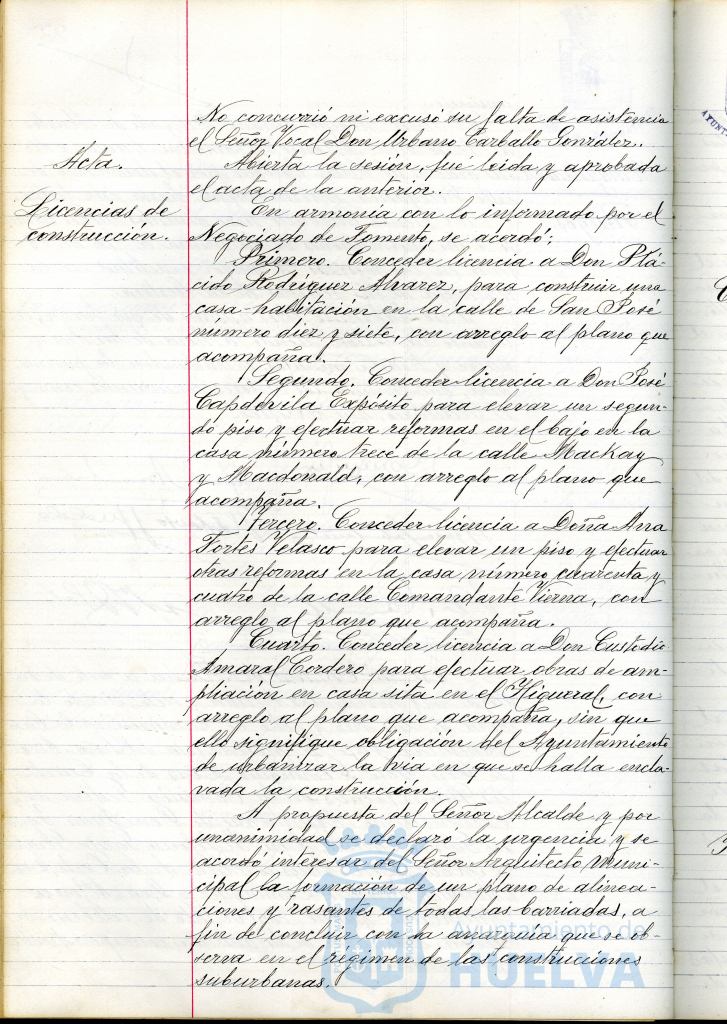 No concurrió ni excusó su falta de asistencia
el Señor Vocal Don Urbano Carballo González.
Acta.
Abierta la sesión, fué leida y aprobada
el acta de la anterior.
Licencias de
construcción.
En armonía con lo informado por el
Negociado de Fomento, se acordó:
Primero. Conceder licencia a Don Plá-
cido Rodríguez Alvarez, para construir una
casa-habitación en la calle de San José
número diez y siete, con arreglo al plano que
acompaña.
Segundo. Conceder licencia a Don José
Capdevila Expósito para elevar un segun-
do piso y efectuar reformas en el bajo en la
casa número trece de la calle Mackay
y Macdonald, con arreglo al plano que
acompaña.
Tercero. Conceder licencia a Doña Ana
Fortes Velasco para elevar un piso y efectuar
otras reformas en la casa número cuarenta y
cuatro de la calle Comandante Vierna, con
arreglo al plano que acompaña.
Cuarto. Conceder licencia a Don Custodio
Amaral Cordero para efectuar obras de am-
pliación en casa sita en el Higueral, con
arreglo al plano que acompaña, sin que
ello signifique obligación del Ayuntamiento
de urbanizar la via en que se halla encla-
vada la construcción.
A propuesta del Señor Alcalde y por
unanimidad se declaró la urgencia y se
acordó interesar del Señor Arquitecto muni-
cipal la formación de un plano de alinea-
ciones y rasantes de todas las barriadas, a
fin de concluir con la anarquía que se ob-
serva en el régimen de las construcciones
suburbanas.
Ayuntamiento de
HUELVA